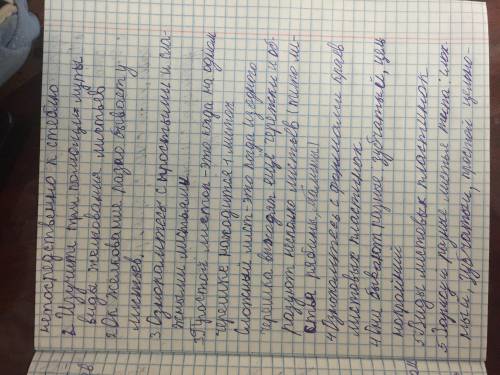 непосредственно к стеблю
2. Изучите при помощи лупы
виды жилкования листьев
2 Ок жилкование разно бывает у
листьев.
3. Ознокомтесь с простыми и сло-
жными листьями
3 Простой листок - это когда на одном
черешке находится 1 листик
сложний лист - это когда из одного
черешка выходят ещё черешки и об-
разуют несколько листьев (типо ли-
ства рябины, малины)
4 Ознакомтесь с формами краёв
листовых пластинок
4 Они бывают разные зубчатый, цель
нокрайний
5 Виды листовых пластинок
5 Запасуи разные листье типа слож
ный, зубчатый, простой цельно-